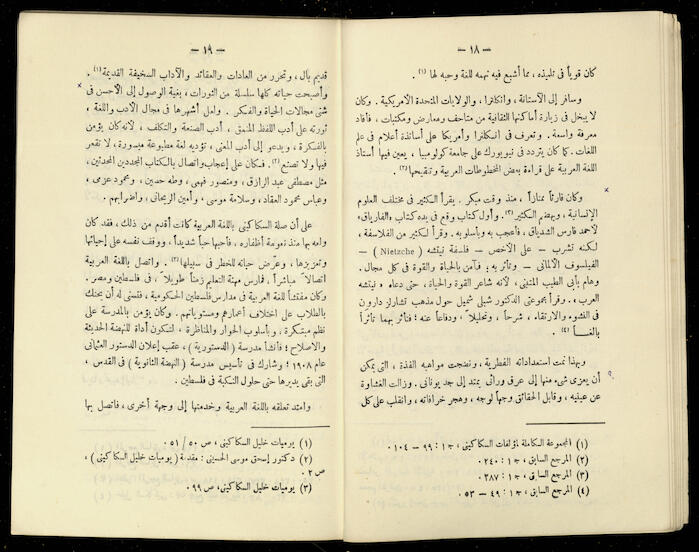 — ١٨ —
كان قوياً فى تلميذه ، مما أشبع فيه نهمه للغة وحبه لها (١) .
وسافر إلى الآستانة ، وانكلترا ، والولايات المتحدة الأمريكية . وكان
لا يبخل فى زيارة أماكنها الثقافية من متاحف ومعارض ومكتبات ، فأفاد
معرفة واسعة . وتعرف فى انكلترا وأمريكا على أساتذة أعلام فى علم
اللغات . كما كان يتردد فى نيويورك على جامعة كولومبيا ، يعين فيها أستاذ
اللغة العربية على قراءة بعض المخطوطات العربية وتنقيحها (٢) .
وكان قارئاً ممتازاً ، منذ وقت مبكر . يقرأ الكثير فى مختلف العلوم
الإنسانية ، ويهضم الكثير (٣) . وأول كتاب وقع فى يده كتاب «الفارياق»
لأحمد فارس الشدياق ، فأعجب به وبأسلوبه . وقرأ لكثير من الفلاسفة ،
لكنه تشرب — على الأخص — فلسفة نيتشه ( Nietzche ) —
الفيلسوف الألمانى — وتأثر به ؛ فآمن بالحياة والقوة فى كل مجال .
وهام بأبى الطيب المتنبى ، لأنه شاعر القوة والحياة ، حتى دعاه « نيتشه
العرب » . وقرأ مجموعتى الدكتور شبلى شميل حول مذهب تشارلز دارون
فى النشوء والارتقاء ، شرحاً ، وتحليلاً ، ودفاعاً عنه ؛ فتأثر بهما تأثراً
بالغــاً (٤) .
وبهذا نمت استعداداته الفطرية ، ونضجت مواهبه الفذة ، التى يمكن
أن يعزى شىء منها إلى عرق وراثى يمتد إلى جد يونانى . وزالت الغشاوة
عن عينيه ، وقابل الحقائق وجهاً لوجه ، وهجر خرافاته ، وانقلب على كل
(١) المجموعة الكاملة لمؤلفات السكاكينى ، ج ١ : ٩٩ — ١٠٤ .
(٢) المرجع السابق ، ج ١ : ٢٤٠ .
(٣) المرجع السابق ، ج ١ : ٣٨٧ .
(٤) المرجع السابق ، ج ١ : ٤٩ — ٥٣ .
— ١٩ —
قديم بال ، وتحرر من العادات والعقائد والآداب السخيفة القديمة (١) .
وأصبحت حياته كلها سلسلة من الثورات ، بغية الوصول إلى الأحسن فى
شتى مجالات الحياة والفكر . ولعل أشهرها فى مجال الأدب واللغة ،
ثورته على أدب اللفظ المنمق ، أدب الصنعة والتكلف ، لأنه كان يؤمن
بالفكرة ، ويدعو إلى أدب المعنى ، تؤديه لغة مطبوعة ميسورة ، لا تقعر
فيها ولا تصنع (٢) . فكان على إعجاب واتصال بالكتاب المجددين المحدثين ،
مثل مصطفى عبد الرازق ، ومنصور فهمى ، وطه حسين ، ومحمود عزمى ،
وعباس محمود العقاد ، وسلامة موسى ، وأمين الريحانى ، وأضرابهم .
على أن صلة السكاكينى باللغة العربية كانت أقدم من ذلك ، فقد كان
ولعه بها منذ نعومة أظفاره ، فأحبها حباً شديداً ، ووقف نفسه على إحيائها
وتعزيزها ، وعرّض حياته للخطر فى سبيلها (٣) . واتصل باللغة العربية
اتصالاً مباشراً ، فمارس مهنة التعليم زمناً طويلاً ، فى فلسطين ومصر .
وكان مفتشاً للغة العربية فى مدارس فلسطين الحكومية ، فتسنى له أن يحتك
بالطلاب على اختلاف أعمارهم ومستوياتهم . وكان يؤمن بالمدرسة على
نظم مبتكرة ، وبأسلوب الحوار والمناظرة ، لتكون أداة للنهضة الحديثة
والإصلاح ؛ فأنشأ مدرسة ( الدستورية ) ، عقب إعلان الدستور العثمانى
عام ١٩٠٨ ؛ وشارك فى تأسيس مدرسة ( النهضة الثانوية ) فى القدس ،
التى بقى يديرها حتى حلول النكبة فى فلسطين .
وامتد تعلقه باللغة العربية وخدمتها إلى وجهة أخرى ، فاتصل بها
(١) يوميات خليل السكاكينى ، ص ٥٠ / ٥١ .
(٢) دكتور إسحق موسى الحسينى : مقدمة ( يوميات خليل السكاكينى ) ،
ص ٢ .
(٣) يوميات خليل السكاكينى ، ص ٩٩ .